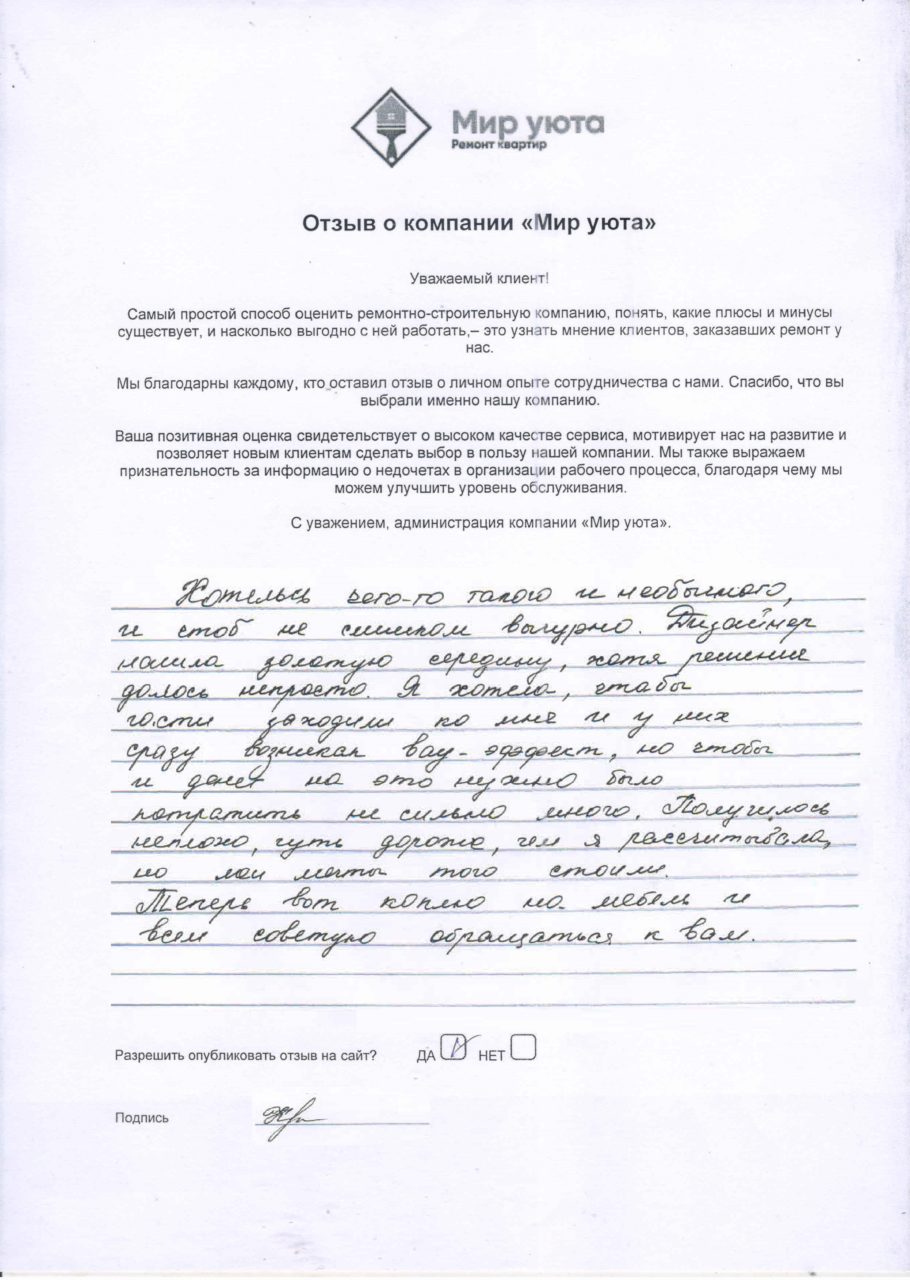 Мир уюта
Ремонт квартир
Отзыв о компании «Мир уюта»
Уважаемый клиент!
Самый простой способ оценить ремонтно-строительную компанию, понять, какие плюсы и минусы
существует, и насколько выгодно с ней работать,– это узнать мнение клиентов, заказавших ремонт у
нас.
Мы благодарны каждому, кто оставил отзыв о личном опыте сотрудничества с нами. Спасибо, что вы
выбрали именно нашу компанию.
Ваша позитивная оценка свидетельствует о высоком качестве сервиса, мотивирует нас на развитие и
позволяет новым клиентам сделать выбор в пользу нашей компании. Мы также выражаем
признательность за информацию о недочетах в организации рабочего процесса, благодаря чему мы
можем улучшить уровень обслуживания.
С уважением, администрация компании «Мир уюта».
Хотелось чего-то такого и необычного,
и чтоб не слишком вычурно. Дизайнер
нашла золотую середину, хотя решение
далось непросто. Я хотела, чтобы
гости заходили ко мне и у них
сразу возникал вау-эффект, но чтобы
и денег на это нужно было
потратить не сильно много. Получилось
неплохо, чуть дороже, чем я рассчитывала,
но мои мечты того стоили.
Теперь вот коплю на мебель и
всем советую обращаться к вам.
Разрешить опубликовать отзыв на сайт? ДА НЕТ
Подпись